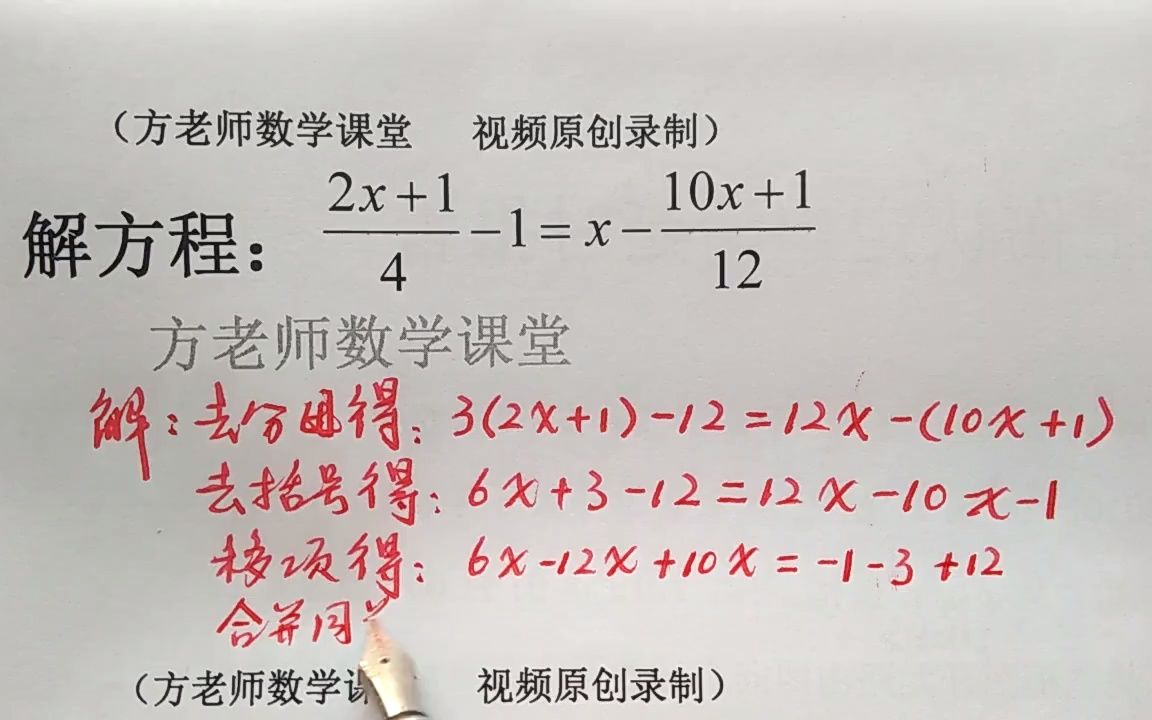 （方老师数学课堂 视频原创录制）
解方程： \frac{2x+1}{4} - 1 = x - \frac{10x+1}{12}
方老师数学课堂
解：去分母得：3(2x+1)-12=12x-(10x+1)
去括号得：6x+3-12=12x-10x-1
移项得：6x-12x+10x=-1-3+12
合并同
（方老师数学课 视频原创录制）